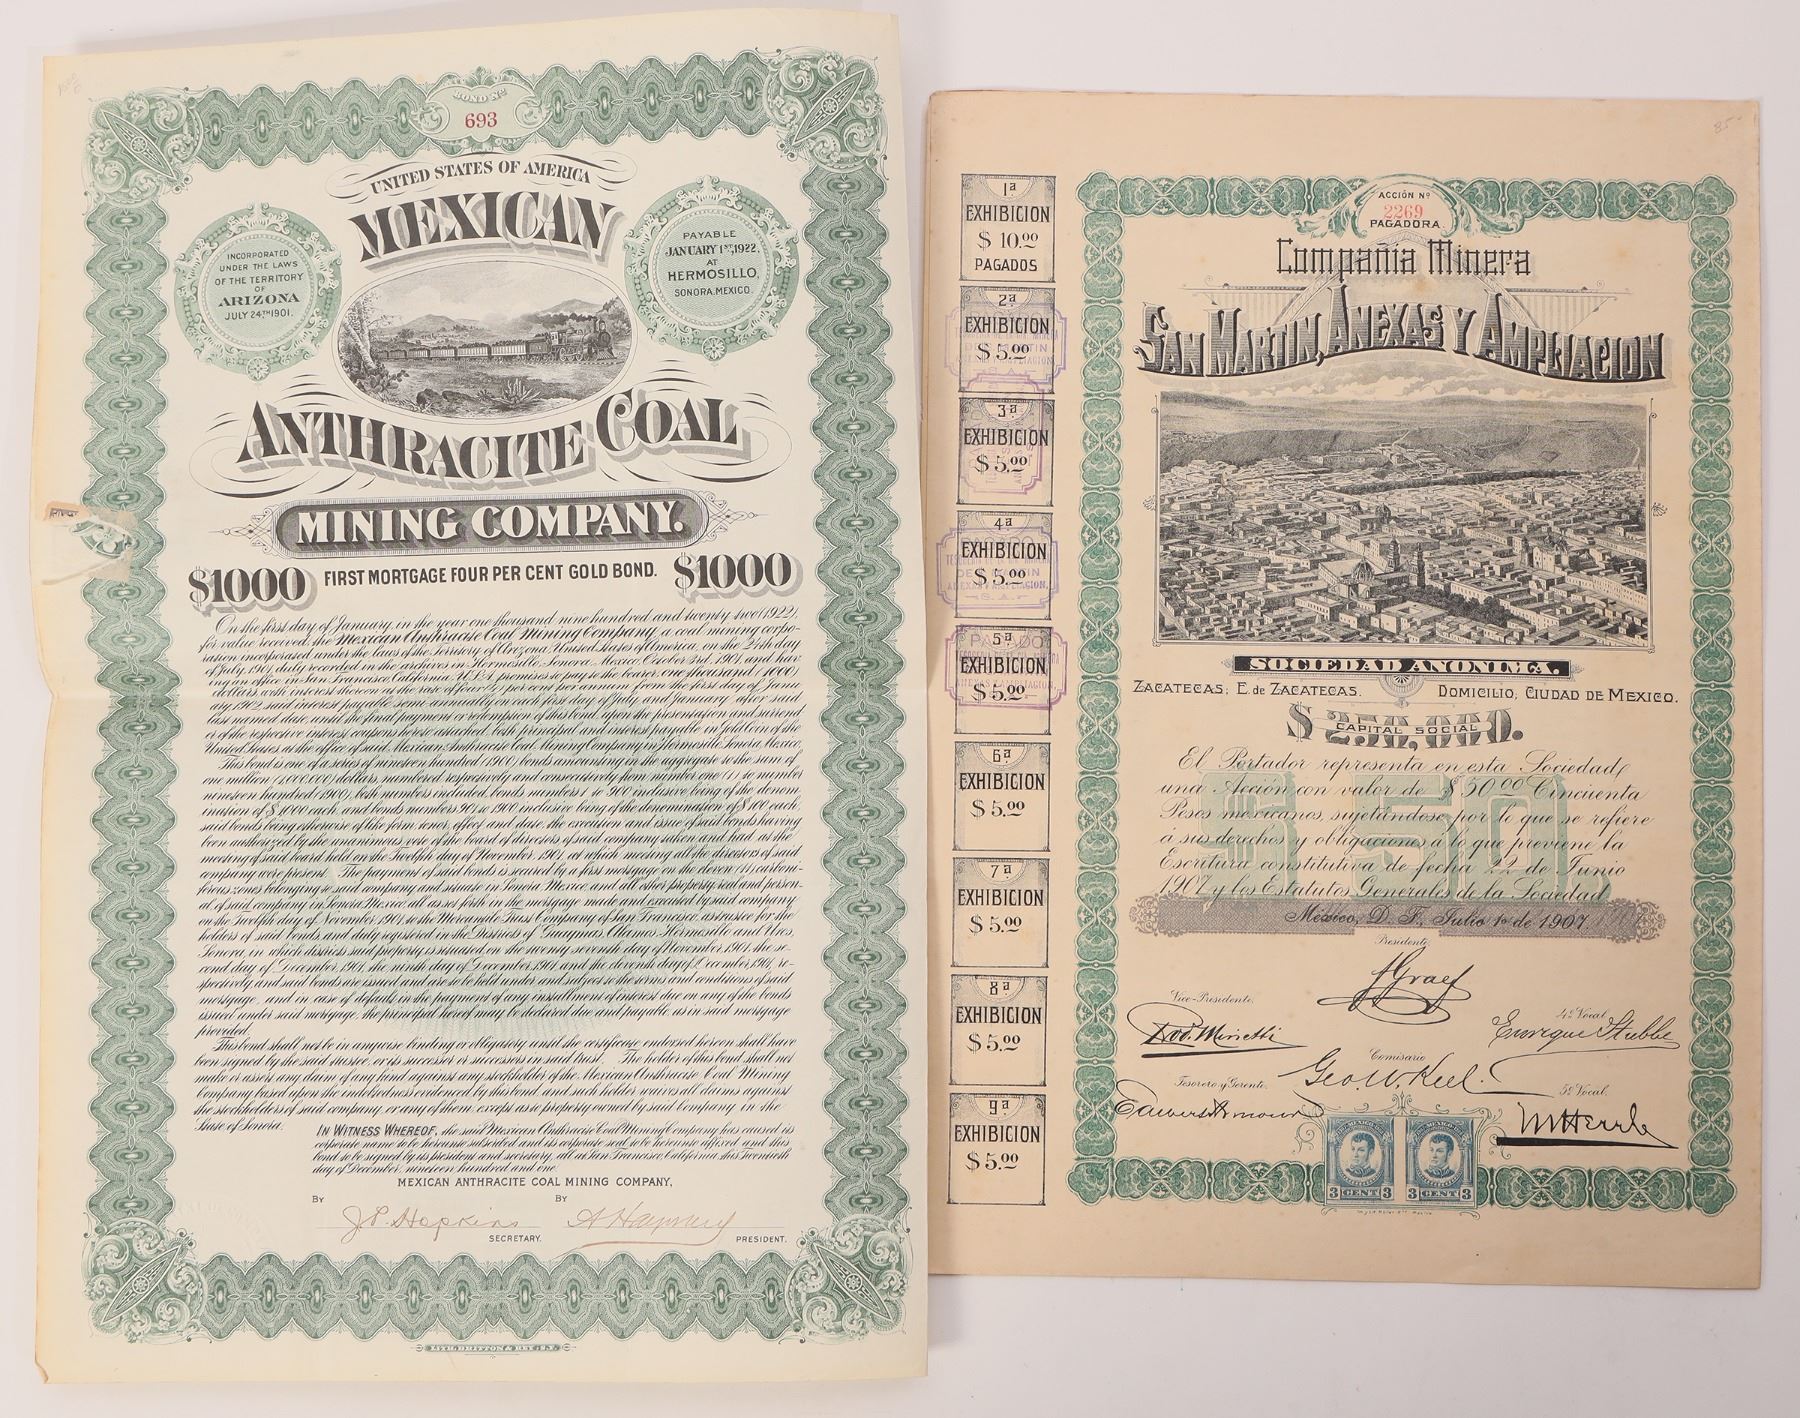 BOND No.
693
UNITED STATES OF AMERICA
MEXICAN
INCORPORATED
UNDER THE LAWS
OF THE TERRITORY
OF
ARIZONA
JULY 24TH 1901.
PAYABLE
JANUARY 1ST, 1922.
AT
HERMOSILLO,
SONORA, MEXICO.
ANTHRACITE COAL
MINING COMPANY.
$1000 FIRST MORTGAGE FOUR PER CENT GOLD BOND. $1000
On the first day of January, in the year one thousand nine hundred and twenty two (1922),
for value received, the Mexican Anthracite Coal Mining Company, a coal mining corpo-
ration incorporated under the laws of the Territory of Arizona, United States of America, on the 24th day
of July, 1901, duly recorded in the archives in Hermosillo, Sonora, Mexico, October 3rd, 1901, and hav-
ing an office in San Francisco, California, U.S.A. promises to pay to the bearer, one thousand (1000)
dollars, with interest thereon at the rate of four (4) per cent per annum from the first day of Janu-
ary, 1902, said interest payable semi-annually on each first day of July and January after said
last named date, until the final payment or redemption of this bond, upon the presentation and surrend-
er of the respective interest coupons hereto attached, both principal and interest payable in gold coin of the
United States at the office of said, Mexican Anthracite Coal Mining Company in Hermosillo, Sonora, Mexico.
This bond is one of a series of nineteen hundred (1900) bonds amounting in the aggregate to the sum of
one million (1,000,000) dollars, numbered respectively and consecutively from number one (1) to number
nineteen hundred (1900), both numbers included, bonds numbers 1 to 900 inclusive being of the denom-
ination of $1000 each, and bonds numbers 901 to 1900 inclusive being of the denomination of $100 each,
said bonds being otherwise of like form, tenor, effect and date, the execution and issue of said bonds having
been authorized by the unanimous vote of the board of directors of said company taken and had at the
meeting of said board held on the Twelfth day of November, 1901, at which meeting all the directors of said
company were present. The payment of said bonds is secured by a first mortgage on the eleven (11) carboni-
ferous zones belonging to said company and situate in Sonora, Mexico, and all other property real and person-
al of said company in Sonora, Mexico, all as set forth in the mortgage made and executed by said company
on the Twelfth day of November, 1901, to the Mercantile Trust Company of San Francisco, as trustee for the
holders of said bonds, and duly registered in the Districts of Guaymas, Alamos, Hermosillo and Ures,
Sonora, in which districts said property is situated on the twenty seventh day of November, 1901, the se-
cond day of December, 1901, the ninth day of December, 1901 and the eleventh day of December, 1901, re-
spectively and said bonds are issued and are to be held under and subject to the terms and conditions of said
mortgage, and in case of default in the payment of any installment of interest due on any of the bonds
issued under said mortgage, the principal hereof may be declared due and payable, as in said mortgage
provided.
This bond shall not be in anywise binding or obligatory until the certificate endorsed hereon shall have
been signed by the said trustee, or its successor or successors in said trust. The holder of this bond shall not
make or assert any claim of any kind against any stockholder of the Mexican Anthracite Coal Mining
Company based upon the indebtedness evidenced by this bond, and such holder waives all claims against
the stockholders of said company, or any of them, except as to property owned by said Company in the
State of Sonora.
IN WITNESS WHEREOF, the said Mexican Anthracite Coal Mining Company has caused its
corporate name to be hereunto subscribed and its corporate seal to be hereunto affixed and this
bond to be signed by its president and secretary, all at San Francisco, California, this Twentieth
day of December, nineteen hundred and one.
MEXICAN ANTHRACITE COAL MINING COMPANY,
BY J. P. Hopkins BY
SECRETARY. PRESIDENT.
LITH. BRITTON & REY, S.F.
85-
1a
EXHIBICION
$ 10.00
PAGADOS
2a
EXHIBICION
$ 5.00
3a
EXHIBICION
$ 5.00
4a
EXHIBICION
$ 5.00
5a
EXHIBICION
$ 5.00
PAGADO
6a
EXHIBICION
$ 5.00
7a
EXHIBICION
$ 5.00
8a
EXHIBICION
$ 5.00
9a
EXHIBICION
$ 5.00
ACCIÓN No
2269
PAGADORA.
Compañia Minera
SAN MARTIN, ANEXAS Y AMPLIACION
SOCIEDAD ANONIMA.
ZACATECAS, E. de ZACATECAS. DOMICILIO, CIUDAD DE MEXICO.
$ 250,000.
CAPITAL SOCIAL
El Portador representa en esta Sociedad,
una Acción con valor de $50.00 Cincuenta
Pesos mexicanos, sujetándose por lo que se refiere
á sus derechos y obligaciones a lo que previene la
Escritura constitutiva de fecha 22 de Junio
1907 y los Estatutos Generales de la Sociedad
$50
México, D. F., Julio 1o de 1907.
Presidente,
Vice-Presidente.
4o Vocal
Enrique Stubbe
Comisario
Tesorero y Gerente.
5o Vocal.
3 CENT 3
3 CENT 3